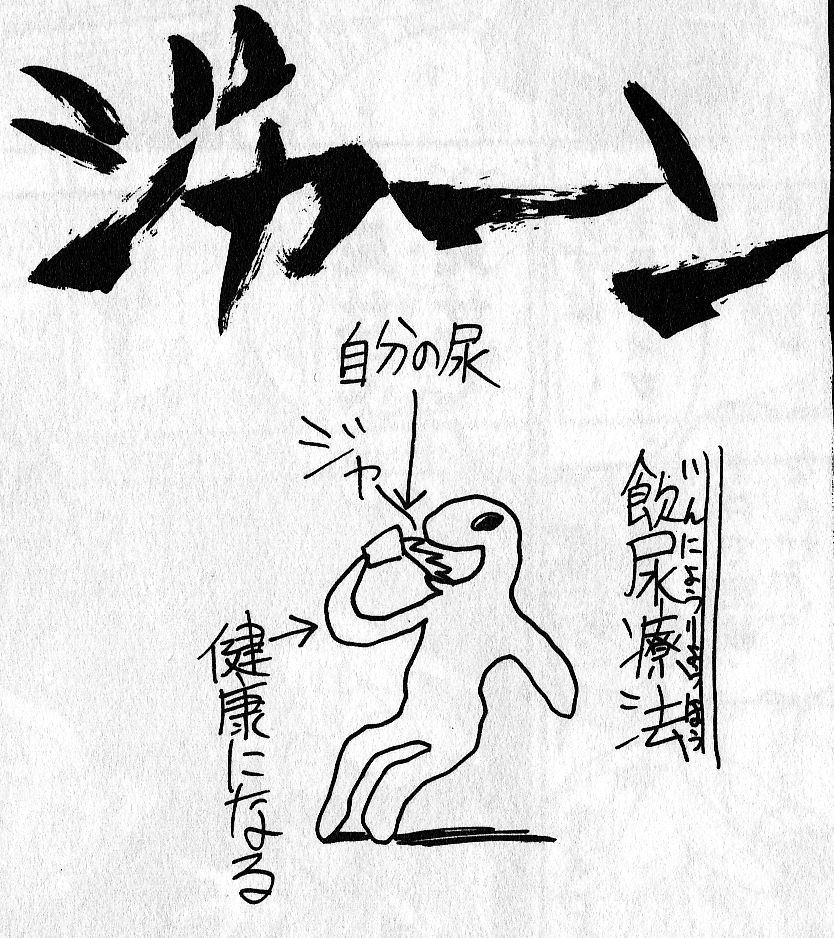 ジャーン
自分の尿
ジャー
いんにょうりょうほう
飲尿療法
健康になる